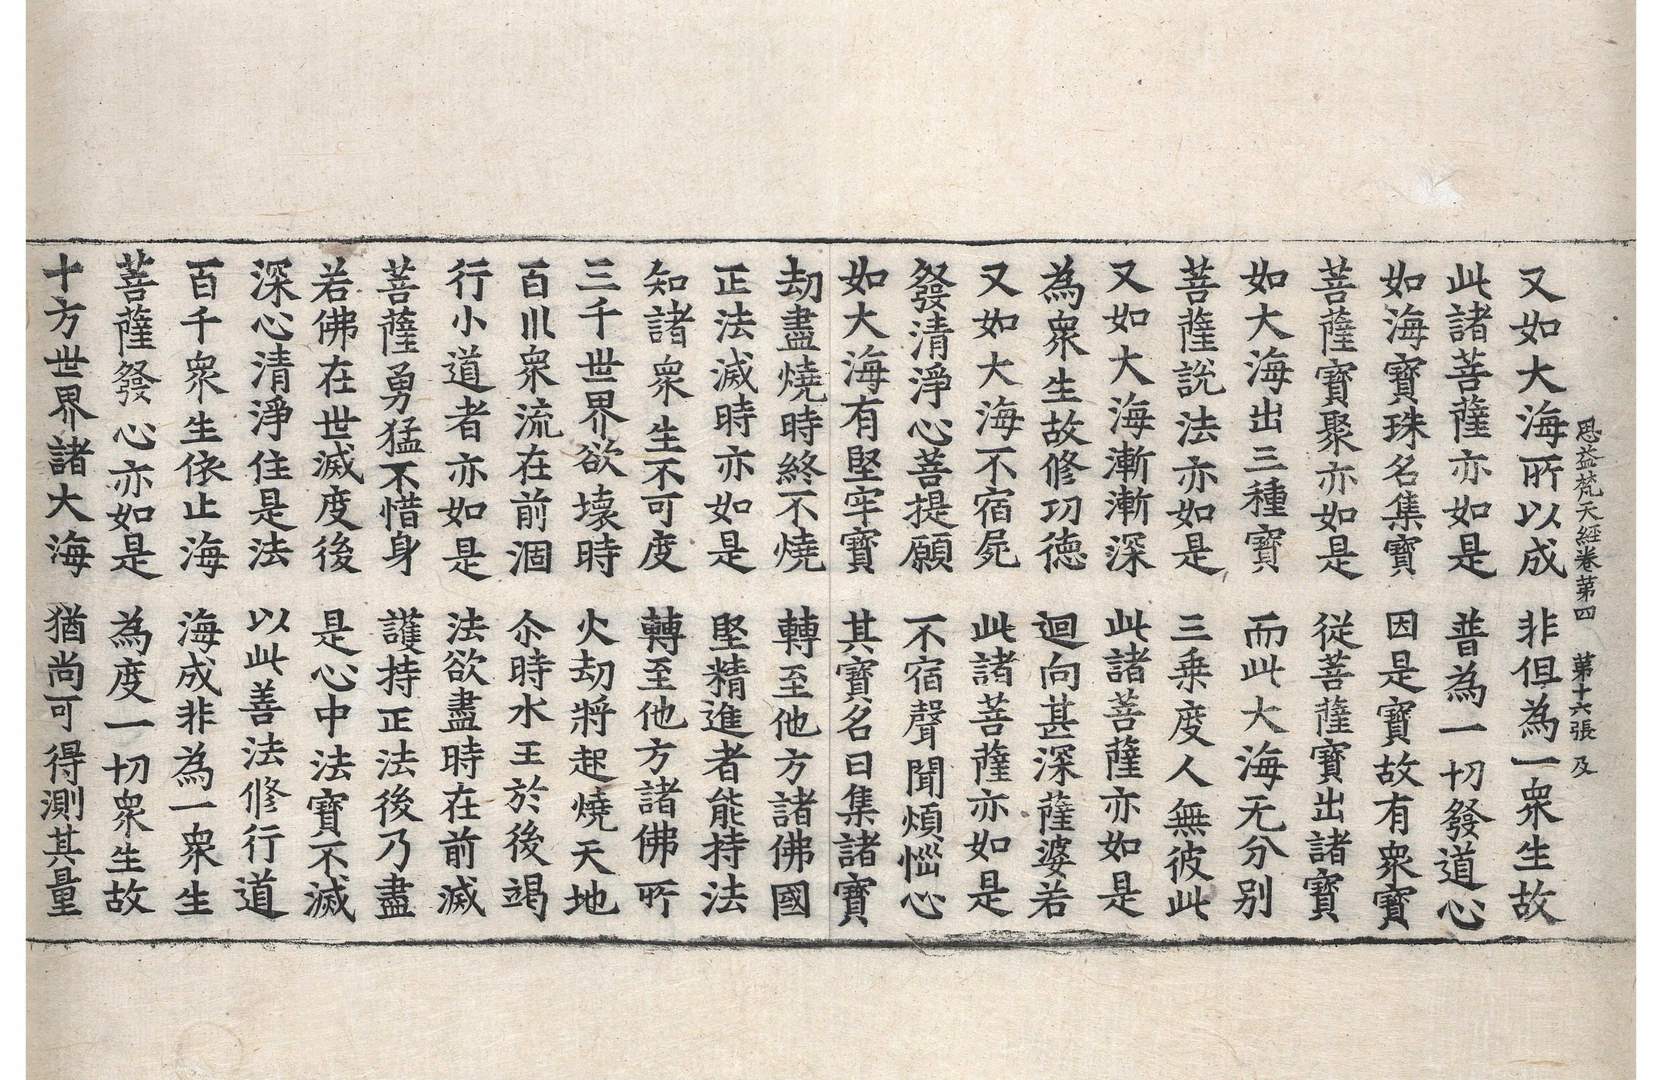 思益梵天經卷第四　第十六張　及
又如大海所以成　非但為一衆生故
此諸菩薩亦如是　普為一切發道心
如海寶珠名集寶　因是寶故有衆寶
菩薩寶聚亦如是　從菩薩寶出諸寶
如大海出三種寶　而此大海无分別
菩薩說法亦如是　三乗度人無彼此
又如大海漸漸深　此諸菩薩亦如是
為衆生故修功德　迴向甚深薩婆若
又如大海不宿屍　此諸菩薩亦如是
發清淨心菩提願　不宿聲聞煩惱心
如大海有堅牢寶　其寶名曰集諸寶
劫盡燒時終不燒　轉至他方諸佛國
正法滅時亦如是　堅精進者能持法
知諸衆生不可度　轉至他方諸佛所
三千世界欲壞時　火劫將起燒天地
百川衆流在前涸　尒時水王於後竭
行小道者亦如是　法欲盡時在前滅
菩薩勇猛不惜身　護持正法後乃盡
若佛在世滅度後　是心中法寶不滅
深心清淨住是法　以此善法修行道
百千衆生依止海　海成非為一衆生
菩薩發心亦如是　為度一切衆生故
十方世界諸大海　猶尚可得測其量